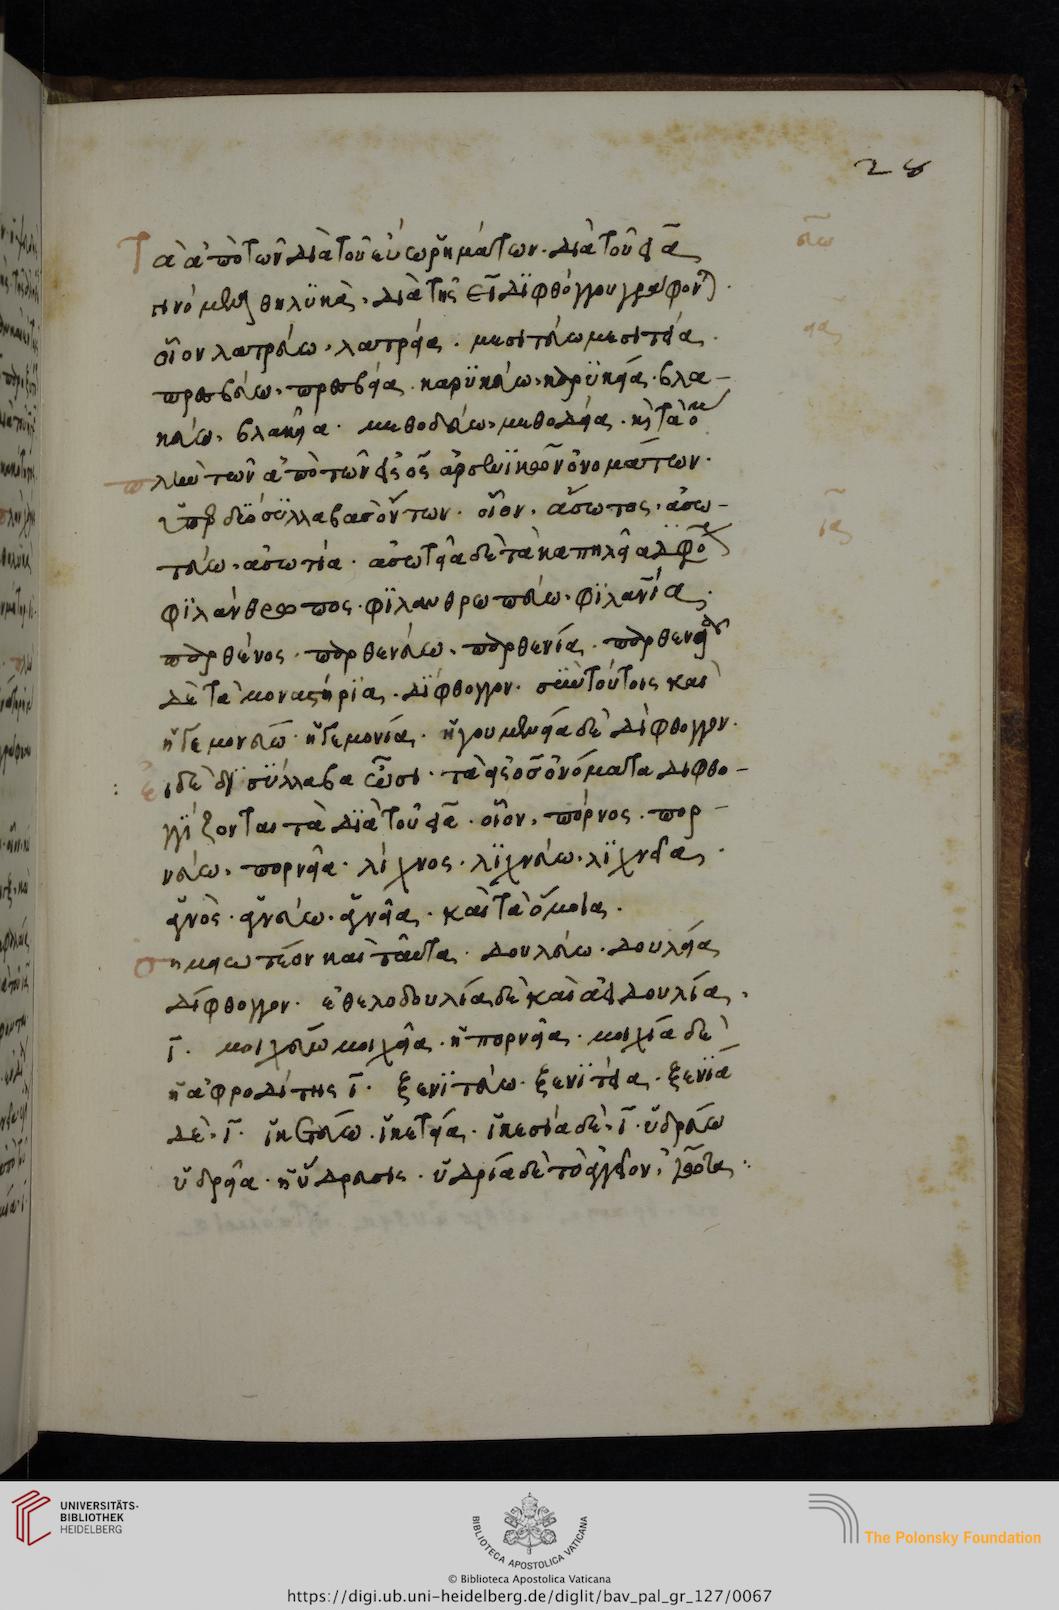 28
Τὰ ἀπὸ τῶν διὰ τοῦ εύω ῥημάτων · διὰ τοῦ εια
γινόμενα θηλϋκὰ · διὰ τῆς ει δϊφθόγγου γράφον ·
οἷον λατρεύω · λατρεία · μεσιτεύω μεσιτεία ·
πρεσβεύω · πρεσβεία · καρϋκεύω · καρϋκεία · βλα-
κεύω · βλακεία · μεθοδεύω · μεθοδεία · καὶ τὰ ὅμ
πλὴν τῶν ἀπὸ τῶν εἰς ος ἀρσενϊκῶν ὀνομάτων ·
ὑπὲρ δύο σϋλλαβὰς ὄντων · οἷον · ἄσωτος · ἀσω-
τεύω · ἀσωτία · ἀσωτεῖα δὲ τὰ καπηλεῖα δϊφθο
φϊλάνθρωπος · φϊλανθρωπεύω · φϊλανία ·
παρθένος · παρθενεύω · παρθενία · παρθενεῖα
δὲ τὰ μοναστήρϊα · δίφθογγον · σὺν τούτοις καὶ
ἡγεμονεύω · ἡγεμονία · ἡγουμενεία δὲ δίφθογγον ·
εἰ δὲ δϊσύλλαβα ὦσι · τὰ εἰς ος ὀνόματα διφθο-
γγίζονται τὰ διὰ τοῦ εια · οἷον · πόρνος · πορ-
νεύω · πορνεία · λίχνος · λϊχνεύω · λϊχνεία ·
καὶ τὰ ὅμοια ·
σημειωτέον καὶ ταῦτα · δουλεύω · δουλεία
δίφθογγον · ἐθελοδουλία δὲ καὶ δουλία ·
ῑ · μοιχεύω μοιχεία · ἡ πορνεία · μοιχία δὲ
ἡ ἀφροδίτης ῑ · ξενϊτεύω · ξενϊτεία · ξενία
δὲ · ῑ · ἱκετεύω · ἱκετεία · ἱκεσία δὲ · ῑ · ὑδρεύω
ὑδρεία · ἡ ὕδρευσις · ὑδρία δὲ τὸ ἀγγεῖον ·
UNIVERSITÄTS-
BIBLIOTHEK
HEIDELBERG
BIBLIOTECA APOSTOLICA VATICANA
The Polonsky Foundation
© Biblioteca Apostolica Vaticana
https://digi.ub.uni-heidelberg.de/diglit/bav_pal_gr_127/0067